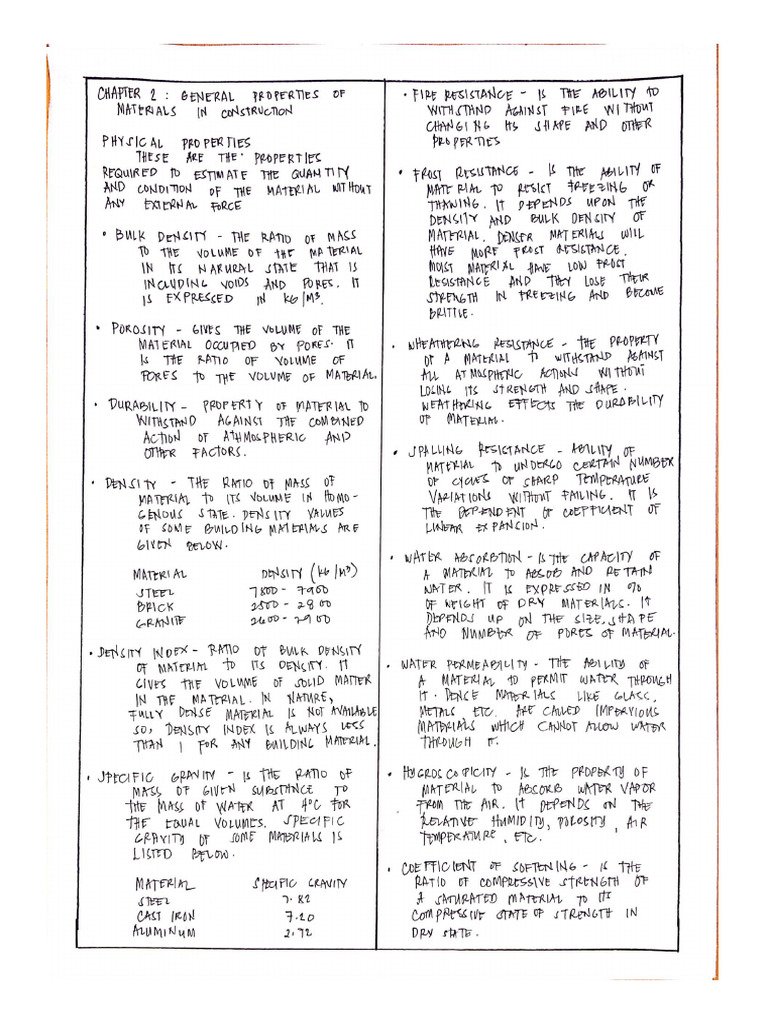 CHAPTER 2 : GENERAL PROPERTIES OF
MATERIALS IN CONSTRUCTION
PHYSICAL PROPERTIES
THESE ARE THE PROPERTIES
REQUIRED TO ESTIMATE THE QUANTITY
AND CONDITION OF THE MATERIAL WITHOUT
ANY EXTERNAL FORCE
• BULK DENSITY - THE RATIO OF MASS
TO THE VOLUME OF THE MATERIAL
IN ITS NARURAL STATE THAT IS
INCLUDING VOIDS AND PORES. IT
IS EXPRESSED IN KG/M³.
• POROSITY - GIVES THE VOLUME OF THE
MATERIAL OCCUPIED BY PORES. IT
IS THE RATIO OF VOLUME OF
PORES TO THE VOLUME OF MATERIAL.
• DURABILITY - PROPERTY OF MATERIAL TO
WITHSTAND AGAINST THE COMBINED
ACTION OF ATHMOSPHERIC AND
OTHER FACTORS.
• DENSITY - THE RATIO OF MASS OF
MATERIAL TO ITS VOLUME IN HOMO-
GENOUS STATE. DENSITY VALUES
OF SOME BUILDING MATERIALS ARE
GIVEN BELOW.
MATERIAL DENSITY (KG/M³)
STEEL 7800 - 7900
BRICK 2500 - 2800
GRANITE 2600 - 2900
• DENSITY INDEX - RATIO OF BULK DENSITY
OF MATERIAL TO ITS DENSITY. IT
GIVES THE VOLUME OF SOLID MATTER
IN THE MATERIAL. IN NATURE,
FULLY DENSE MATERIAL IS NOT AVAILABLE
SO, DENSITY INDEX IS ALWAYS LESS
THAN 1 FOR ANY BUILDING MATERIAL.
• SPECIFIC GRAVITY - IS THE RATIO OF
MASS OF GIVEN SUBSTANCE TO
THE MASS OF WATER AT 4°C FOR
THE EQUAL VOLUMES. SPECIFIC
GRAVITY OF SOME MATERIALS IS
LISTED BELOW.
MATERIAL SPECIFIC GRAVITY
STEEL 7.82
CAST IRON 7.20
ALUMINUM 2.72
• FIRE RESISTANCE - IS THE ABILITY TO
WITHSTAND AGAINST FIRE WITHOUT
CHANGING ITS SHAPE AND OTHER
PROPERTIES
• FROST RESISTANCE - IS THE ABILITY OF
MATERIAL TO RESIST FREEZING OR
THAWING. IT DEPENDS UPON THE
DENSITY AND BULK DENSITY OF
MATERIAL. DENSER MATERIALS WILL
HAVE MORE FROST RESISTANCE.
MOIST MATERIAL HAVE LOW FROST
RESISTANCE AND THEY LOSE THEIR
STRENGTH IN FREEZING AND BECOME
BRITTLE.
• WHEATHERING RESISTANCE - THE PROPERTY
OF A MATERIAL TO WITHSTAND AGAINST
ALL ATMOSPHERIC ACTIONS WITHOUT
LOSING ITS STRENGTH AND SHAPE.
WEATHERING EFFECTS THE DURABILITY
OF MATERIAL.
• SPALLING RESISTANCE - ABILITY OF
MATERIAL TO UNDERGO CERTAIN NUMBER
OF CYCLES OF SHARP TEMPERATURE
VARIATIONS WITHOUT FAILING. IT IS
THE DEPENDENT OF COEFFICIENT OF
LINEAR EXPANSION.
• WATER ABSORBTION - IS THE CAPACITY OF
A MATERIAL TO ABSOB AND RETAIN
WATER. IT IS EXPRESSED IN %
OF WEIGHT OF DRY MATERIALS. IT
DEPENDS UP ON THE SIZE, SHAPE
AND NUMBER OF PORES OF MATERIAL.
• WATER PERMEABILITY - THE ABILITY OF
A MATERIAL TO PERMIT WATER THROUGH
IT. DENSE MATERIALS LIKE GLASS,
METALS ETC. ARE CALLED IMPERVIOUS
MATERIALS WHICH CANNOT ALLOW WATER
THROUGH IT.
• HYGROSCOPICITY - IS THE PROPERTY OF
MATERIAL TO ABSORB WATER VAPOR
FROM THE AIR. IT DEPENDS ON THE
RELATIVE HUMIDITY, POLOSITY, AIR
TEMPERATURE, ETC.
• COEFFICIENT OF SOFTENING - IS THE
RATIO OF COMPRESSIVE STRENGTH OF
A SATURATED MATERIAL TO ITS
COMPRESSIVE STATE OF STRENGTH IN
DRY STATE.